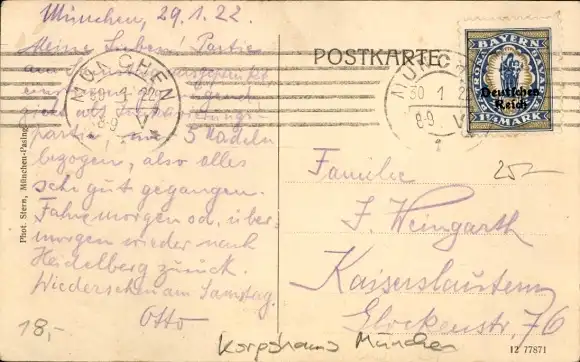 München, 29.1.22.
Meine Lieben! Partie
am
partie, mit 5 Mädeln
bezogen, also alles
sehr gut gegangen.
Fahre morgen od. über-
morgen wieder nach
Heidelberg zurück.
Wiedersehen am Samstag.
Otto
18,-
Phot. Stern, München-Pasing
POSTKARTE
MÜNCHEN
30 1 22
8-9 V
MÜNCHEN
30 1 2
8-9 V
BAYERN
Deutschen
Reich
1½ MARK
252
Familie
J. Weingarth
Kaiserslautern
Glockenstr. 76
Korpshaus München
12 77871